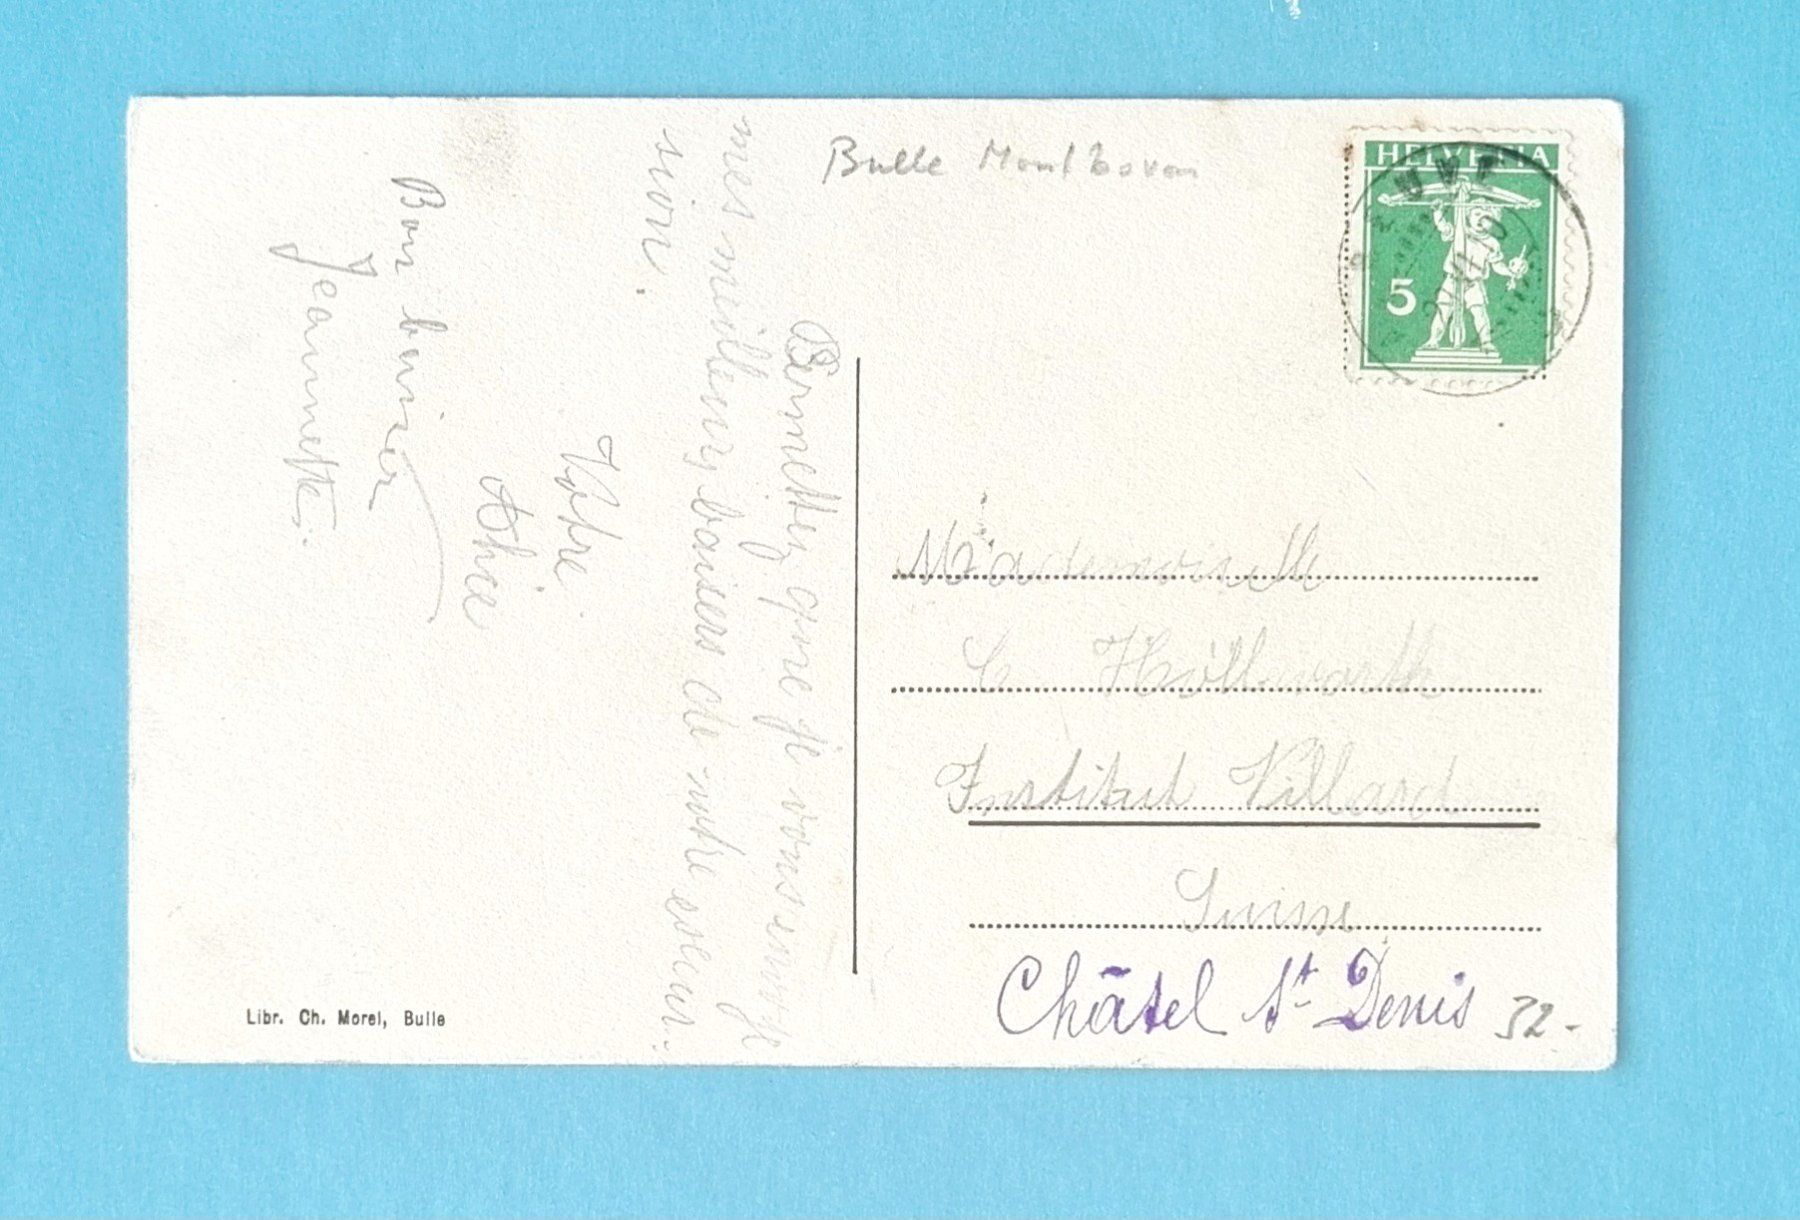 Bulle Montbovon
HELVETIA
5
Permettez que je vous envoje
mes meilleurs baisers de notre excur-
sion.
Votre
Alice
Bon baiser
Jeannette.
Mademoiselle
C Höllwarth
Institut Villard
Suisse
Châtel St Denis 32-
Libr. Ch. Morel, Bulle